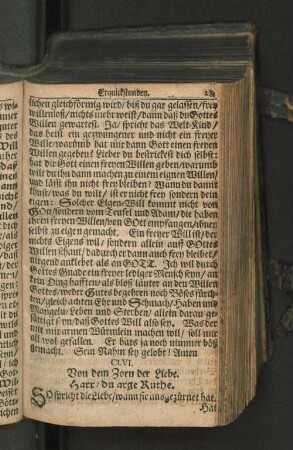 Erquickstunden.
lichen gleichförmig wird/ biß du gar gelassen/ frey
willenloß/ nichts mehr weist/ dann daß du Gottes
Willen gewartest. Ja/ spricht das Welt-Kind/
das heist ein gezwungener und nicht ein freyer
Wille/ warumb hat mir dann Gott einen freyen
Willen gegeben? Lieber du bestrickest dich selbst:
hat dir Gott einen freyen Willen geben/ warumb
wilt du ihn dann machen zu einem eignen Willen/
und läst ihn nicht frey bleiben? Wann du damit
thust/ was du wilt/ ist er nicht frey sondern dein
eigen: Solcher Eigen-Will kommt nicht von
GOtt/ sondern vom Teufel und Adam/ die haben
ihren freyen Willen/ von GOtt empfangen/ ihnen
selbst zu eigen gemacht. Ein freyer Will ist/ der
nichts Eigens wil/ sondern allein auff GOttes
Willen schaut/ dadurch er dann auch frey bleibet/
niergend anklebt als an GOTT. Ich wil durch
Gottes Gnade ein freyer lediger Mensch seyn/ an
kein Ding hafften/ als bloß lauter an den Willen
Gottes/ weder Gutes begehren noch Böses fürch-
ten/ gleich achten Ehr und Schmach/ Haben und
Mangeln/ Leben und Sterben/ allein daran ge-
sättigt seyn/ daß Gottes Will also sey. Was der
mit mir armen Würmlein machen wil/ soll mir
all wol gefallen. Er hats ja noch nimmer böß
gemacht. Sein Nahm sey gelobt! Amen
CLVI.
Von dem Zorn der Liebe.
Harr/ du arge Ruthe.
SO spricht die Liebe/ wann sie ausgezürnet hat.
Hat